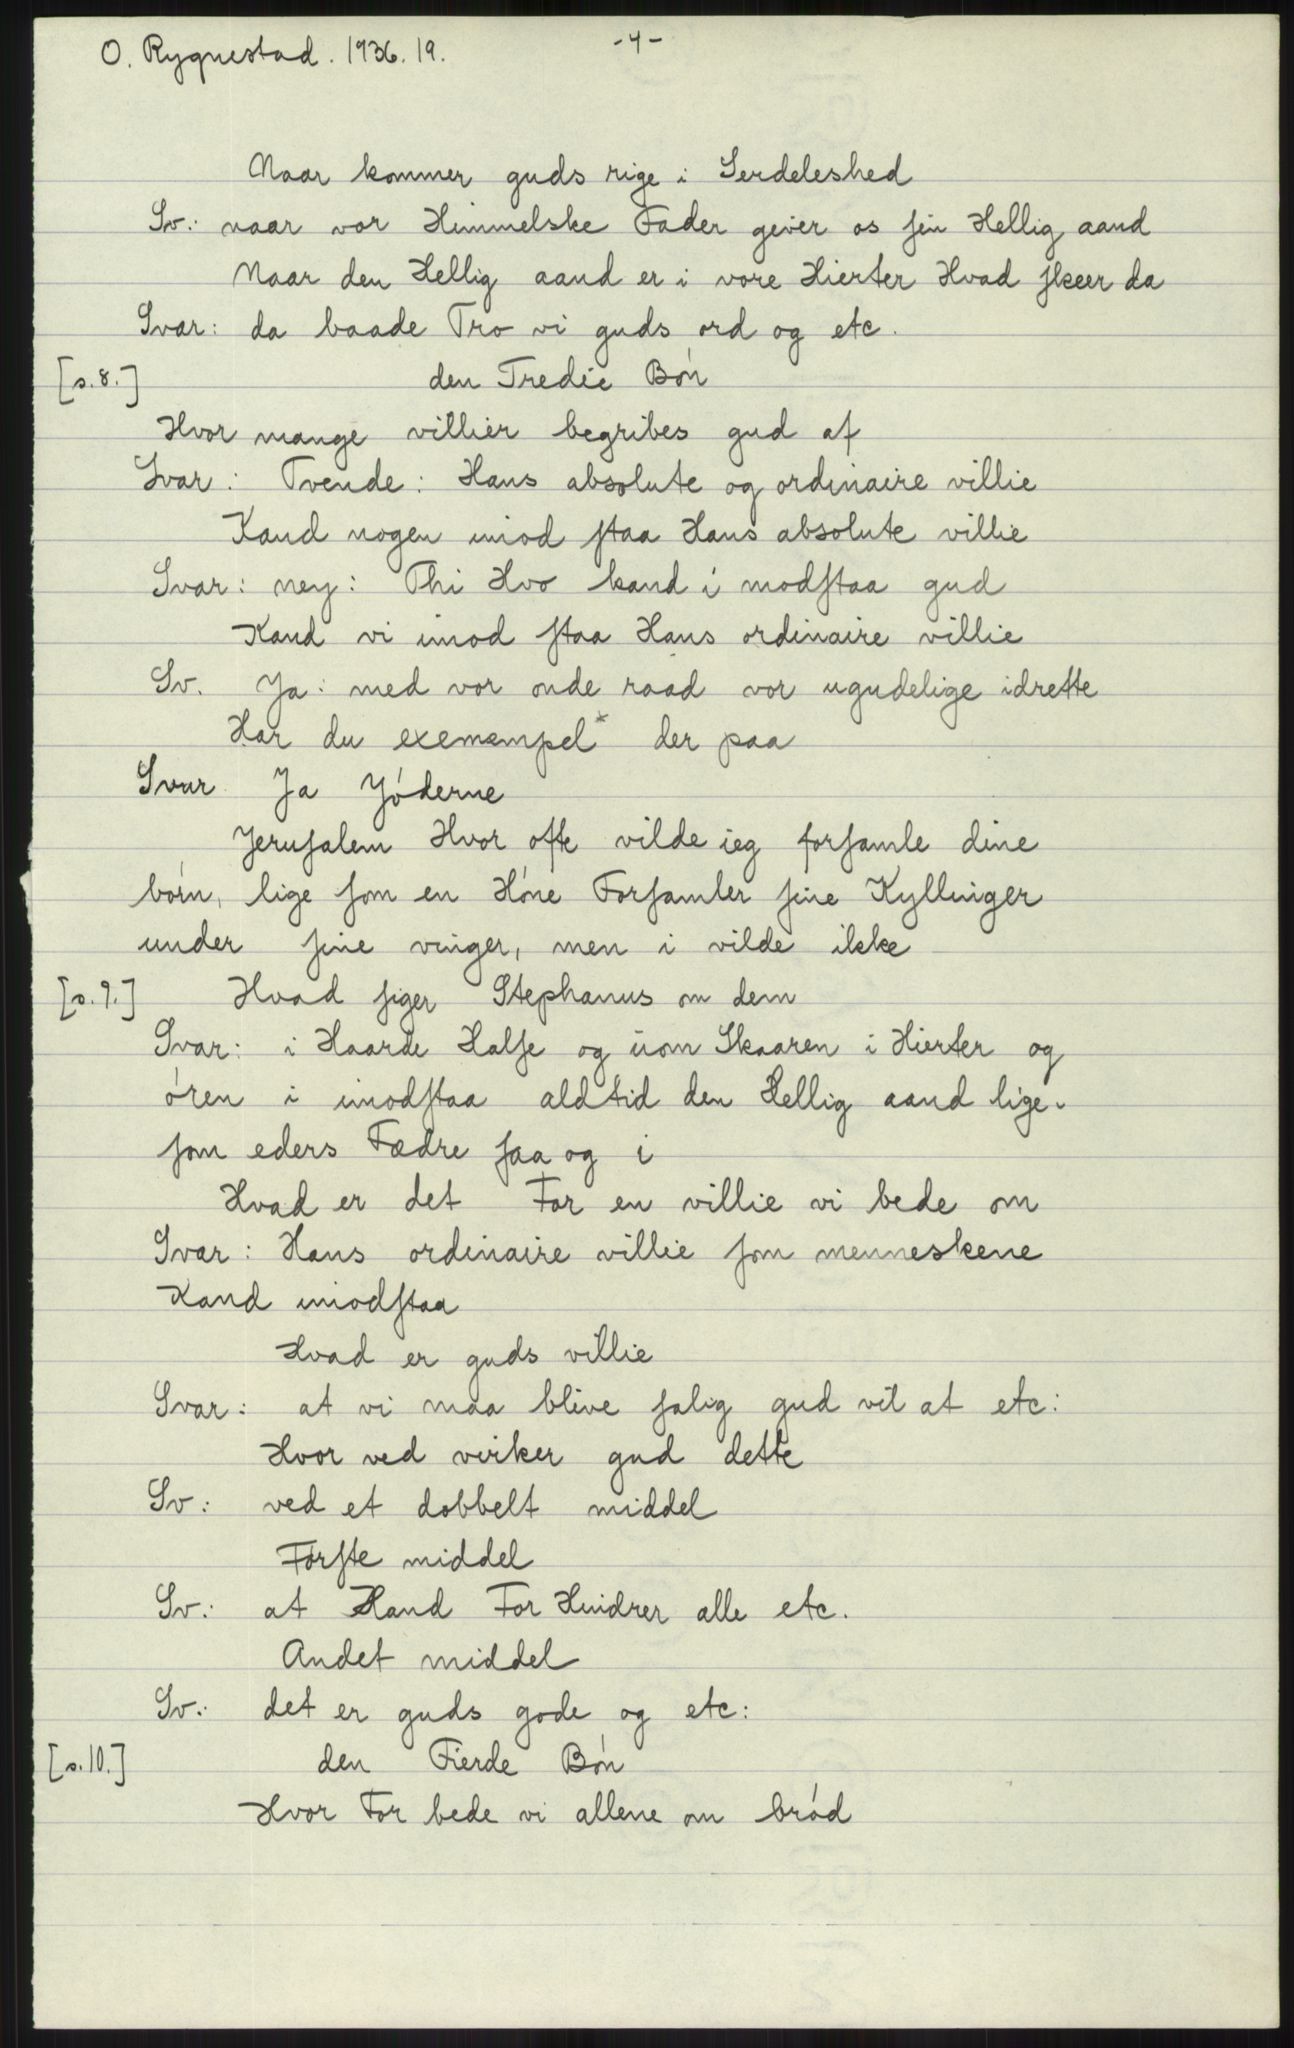 O. Rygnestad. 1936. 19.
-4-
Naar kommer guds rige i Serdeleshed
Sv: naar vor Himmelske Fader gever os sin Hellig aand
Naar den Hellig aand er i vore Hierter Hvad skeer da
Svar: da baade Tro vi guds ord og etc.
[s.8.] den Tredie Bón
Hvor mange villier begribes gud af
Svar: Tvende: Hans absolute og ordinaire villie
Kand nogen imod staa Hans absolute villie
Svar: ney: Thi Hvo kand i modstaa gud
Kand vi imod staa Hans ordinaire villie
Sv. Ja: med vor onde raad vor ugudelige idrette
Har du exemempel* der paa
Svar Ja Jóderne
Jerusalem Hvor ofte vilde ieg forsamle dine
bórn, lige som en Hóne Forsamler sine Kyllinger
under sine vinger, men i vilde ikke
[s.9.] Hvad siger Stephanus om dem
Svar: i Haarde Halse og uom Skaaren i Hierter og
óren i imodstaa aldtid den Hellig aand lige-
som eders Fædre saa og i
Hvad er det For en villie vi bede om
Svar: Hans ordinaire villie som menneskene
Kand imodstaa
Hvad er guds villie
Svar: at vi maa blive salig gud vil at etc:
Hvor ved virker gud dette
Sv: ved et dobbelt middel
Fórste middel
Sv: at Hand For Hindrer alle etc.
Andet middel
Sv: det er guds gode og etc:
[s.10.] den Fierde Bón
Hvor For bede vi allene om bród